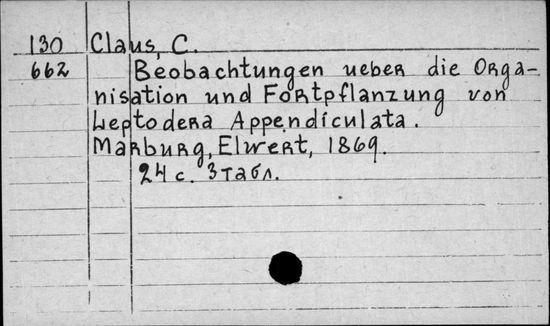 130 Claus, C.
662 Beobachtungen ueber die Orga-
nisation und Fortpflanzung von
Leptodera Appendiculata.
Marburg, Elwert, 1869.
24 с. 3 табл.